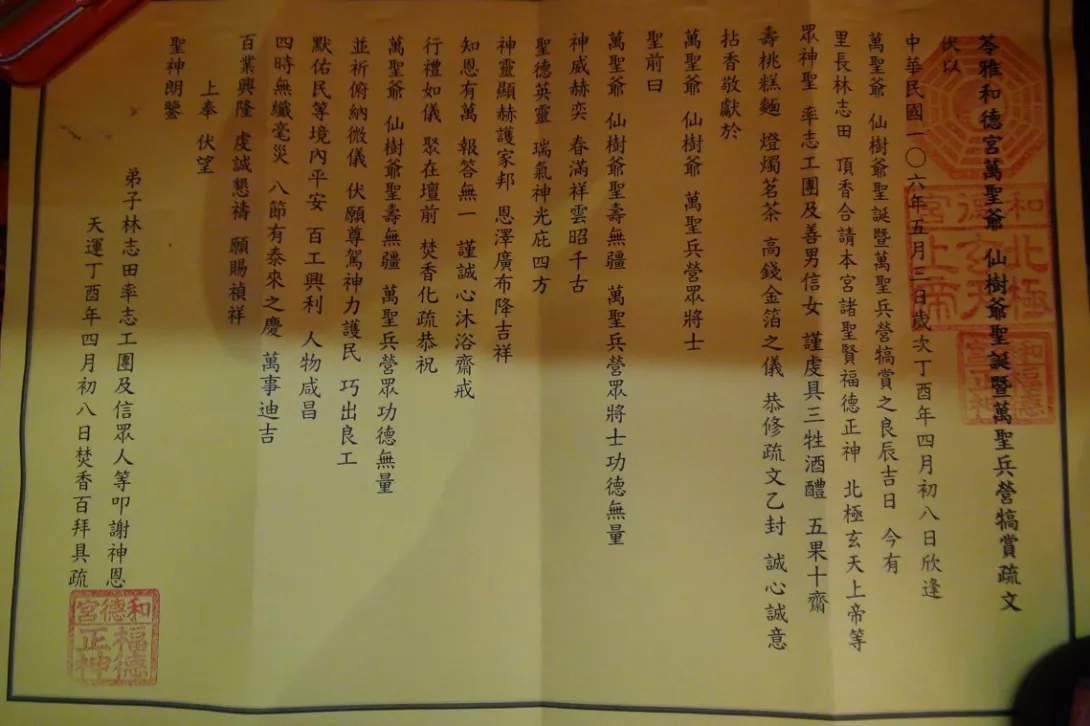 苓雅和德宮萬聖爺 仙樹爺聖誕暨萬聖兵營犒賞疏文
伏以
中華民國一〇六年五月三日歲次丁酉年四月初八日欣逢
萬聖爺 仙樹爺聖誕暨萬聖兵營犒賞之良辰吉日 今有
里長林志田 頂香合請本宮諸聖賢福德正神 北極玄天上帝等
眾神聖 率志工團及善男信女 謹虔具三牲酒醴 五果十齋
壽桃糕麵 燈燭茗茶 高錢金箔之儀 恭修疏文乙封 誠心誠意
拈香敬獻於
萬聖爺 仙樹爺 萬聖兵營眾將士
聖前曰
萬聖爺 仙樹爺聖壽無疆 萬聖兵營眾將士功德無量
神威赫奕 春滿祥雲昭千古
聖德英靈 瑞氣神光庇四方
神靈顯赫護家邦 恩澤廣布降吉祥
知恩有萬 報答無一 謹誠心沐浴齋戒
行禮如儀 聚在壇前 焚香化疏恭祝
萬聖爺 仙樹爺聖壽無疆 萬聖兵營眾功德無量
並祈俯納微儀 伏願尊駕神力護民 巧出良工
默佑民等境內平安 百工興利 人物咸昌
四時無纖毫災 八節有泰來之慶 萬事迪吉
百業興隆 虔誠懇禱 願賜禎祥
上奉 伏望
聖神朗鑒
弟子林志田率志工團及信眾人等叩謝神恩
天運丁酉年四月初八日焚香百拜具疏
和德宮
北極玄天上帝
和德宮
福德正神
和德宮
福德正神